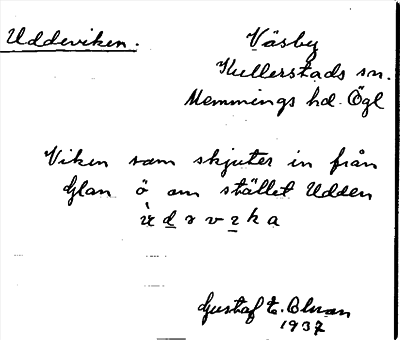 Uddeviken.
Väsby
Kullerstads sn.
Memmings hd. Ögl
Viken som skjuter in från
Glan ö om stället Udden
Gustaf E.
1937